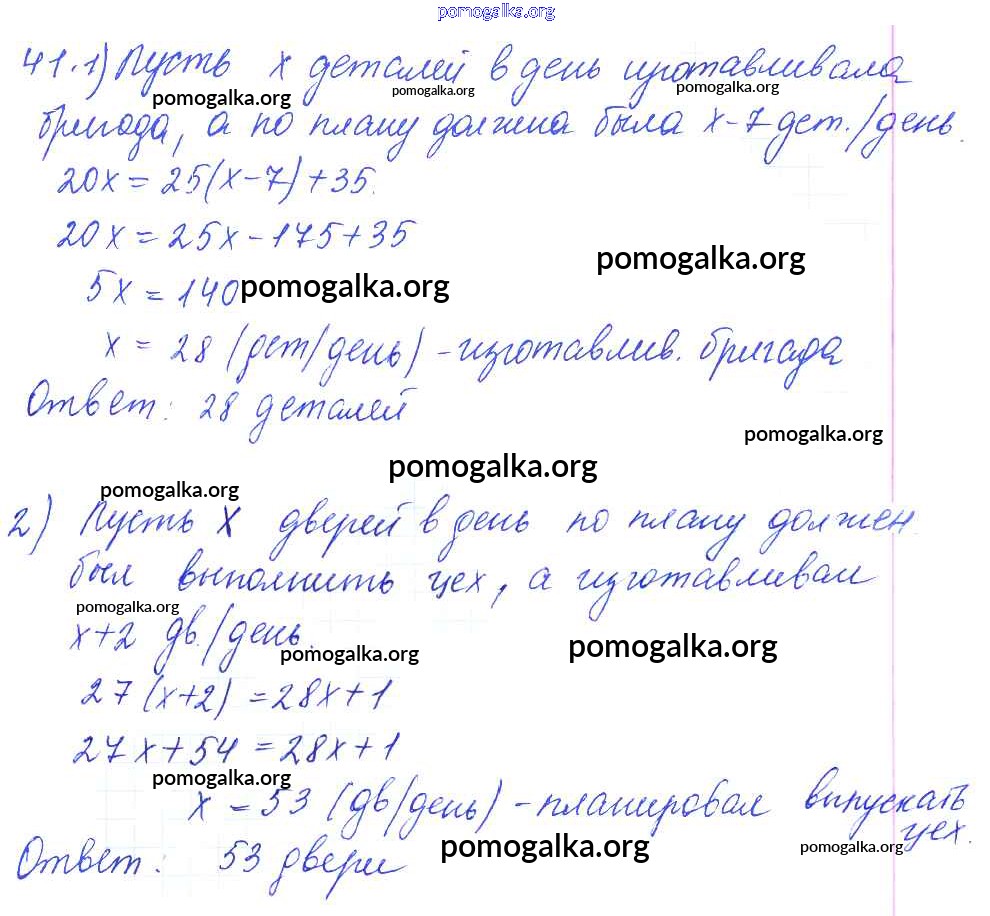 pomogalka.org
41.1) Пусть x деталей в день изготавливала
pomogalka.org pomogalka.org pomogalka.org
бригада, а по плану должна была x-7 дет./день.
20x = 25(x-7)+35.
20x = 25x-175+35
pomogalka.org
5x = 140 pomogalka.org
x = 28 (дет/день) - изготавлив. бригада
Ответ: 28 деталей
pomogalka.org
pomogalka.org
pomogalka.org
2) Пусть x дверей в день по плану должен
был выполнить цех, а изготавливал
pomogalka.org
x+2 дв./день.
pomogalka.org pomogalka.org
27(x+2) = 28x+1
27x+54 = 28x+1
pomogalka.org
x = 53 (дв/день) - планировал выпускать
цех.
Ответ: 53 двери pomogalka.org pomogalka.org